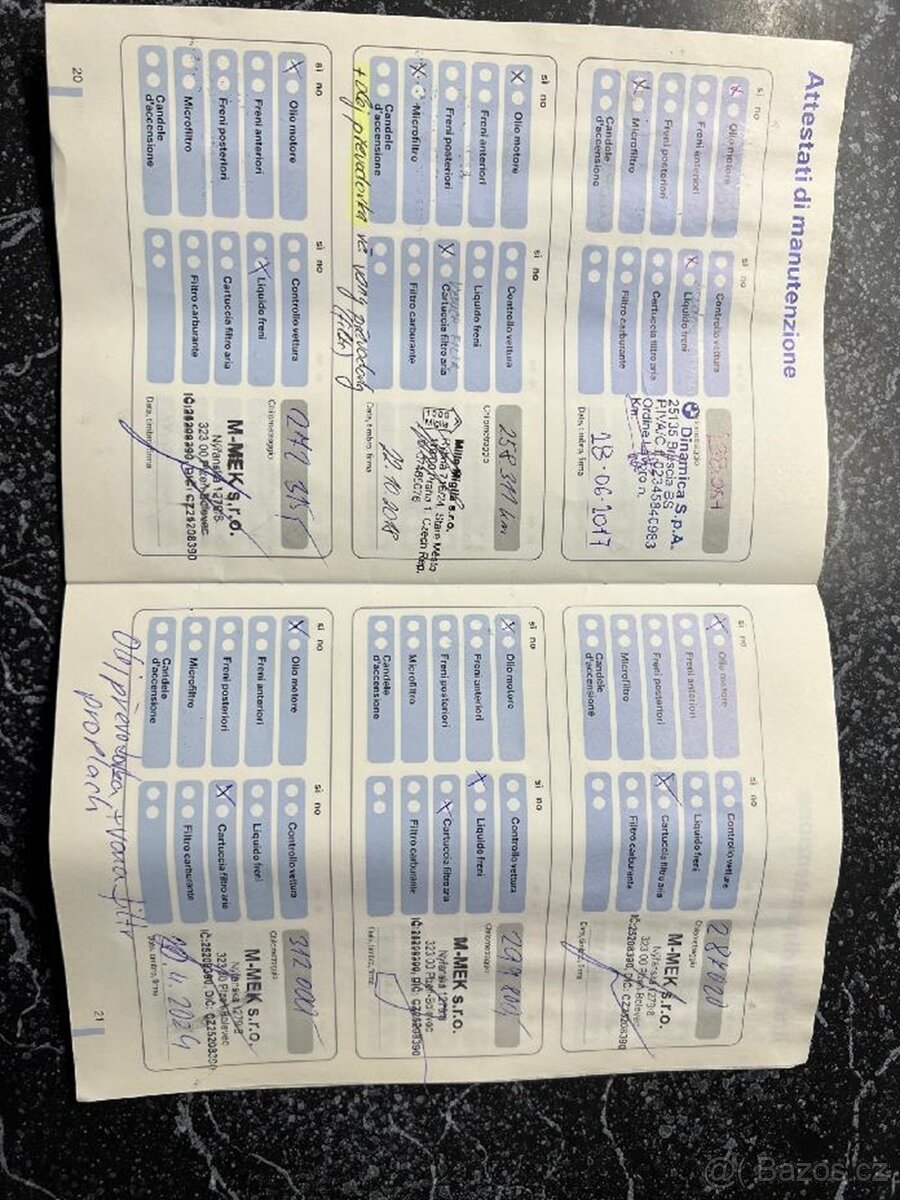 Attestati di manutenzione
si no
Olio motore
Freni anteriori
Freni posteriori
Microfiltro
Candele
d'accensione
si no
Controllo vettura
Liquido freni
Cartuccia filtro aria
Filtro carburante
Chilometraggio
Dinamica S.p.A.
25135 Brescia BS
Ordine Lavoro n.
Km.
28.06.2017
Data, timbro, firma
si no
Olio motore
Freni anteriori
Freni posteriori
Microfiltro
Candele
d'accensione
si no
Controllo vettura
Liquido freni
Cartuccia filtro aria
Filtro carburante
Chilometraggio
258 311 km
Mille Miglia s.r.o.
Staré Město
Praha 1, Czech Rep.
22.10.2018
Data, timbro, firma
+ olej převodovka vč. vany převodovky
(filtr)
si no
Olio motore
Freni anteriori
Freni posteriori
Microfiltro
Candele
d'accensione
si no
Controllo vettura
Liquido freni
Cartuccia filtro aria
Filtro carburante
Chilometraggio
M-MEK s.r.o.
Nýřanská 1279/8
323 00 Plzeň-Bolevec
IČ:25208390, DIČ: CZ25208390
Data, timbro, firma
20
si no
Olio motore
Freni anteriori
Freni posteriori
Microfiltro
Candele
d'accensione
si no
Controllo vettura
Liquido freni
Cartuccia filtro aria
Filtro carburante
Chilometraggio
M-MEK s.r.o.
Nýřanská 1279/8
323 00 Plzeň-Bolevec
IČ:25208390, DIČ: CZ25208390
Data, timbro, firma
si no
Olio motore
Freni anteriori
Freni posteriori
Microfiltro
Candele
d'accensione
si no
Controllo vettura
Liquido freni
Cartuccia filtro aria
Filtro carburante
Chilometraggio
M-MEK s.r.o.
Nýřanská 1279/8
323 00 Plzeň-Bolevec
IČ:25208390, DIČ: CZ25208390
Data, timbro, firma
si no
Olio motore
Freni anteriori
Freni posteriori
Microfiltro
Candele
d'accensione
si no
Controllo vettura
Liquido freni
Cartuccia filtro aria
Filtro carburante
Chilometraggio
M-MEK s.r.o.
Nýřanská 1279/8
323 00 Plzeň-Bolevec
IČ:25208390, DIČ: CZ25208390
4.2024
Data, timbro, firma
Olej převodovka + vana + filtr
proplach
21
Bazoš.cz